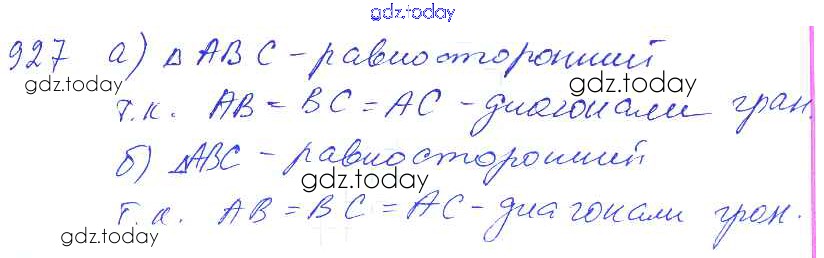 gdz.today
927 а) △ ABC - равносторонний
gdz.today gdz.today
т.к. AB = BC = AC - диагонали гран.
б) △ABC - равносторонний
gdz.today
т.к. AB = BC = AC - диагонали гран.
gdz.today gdz.today